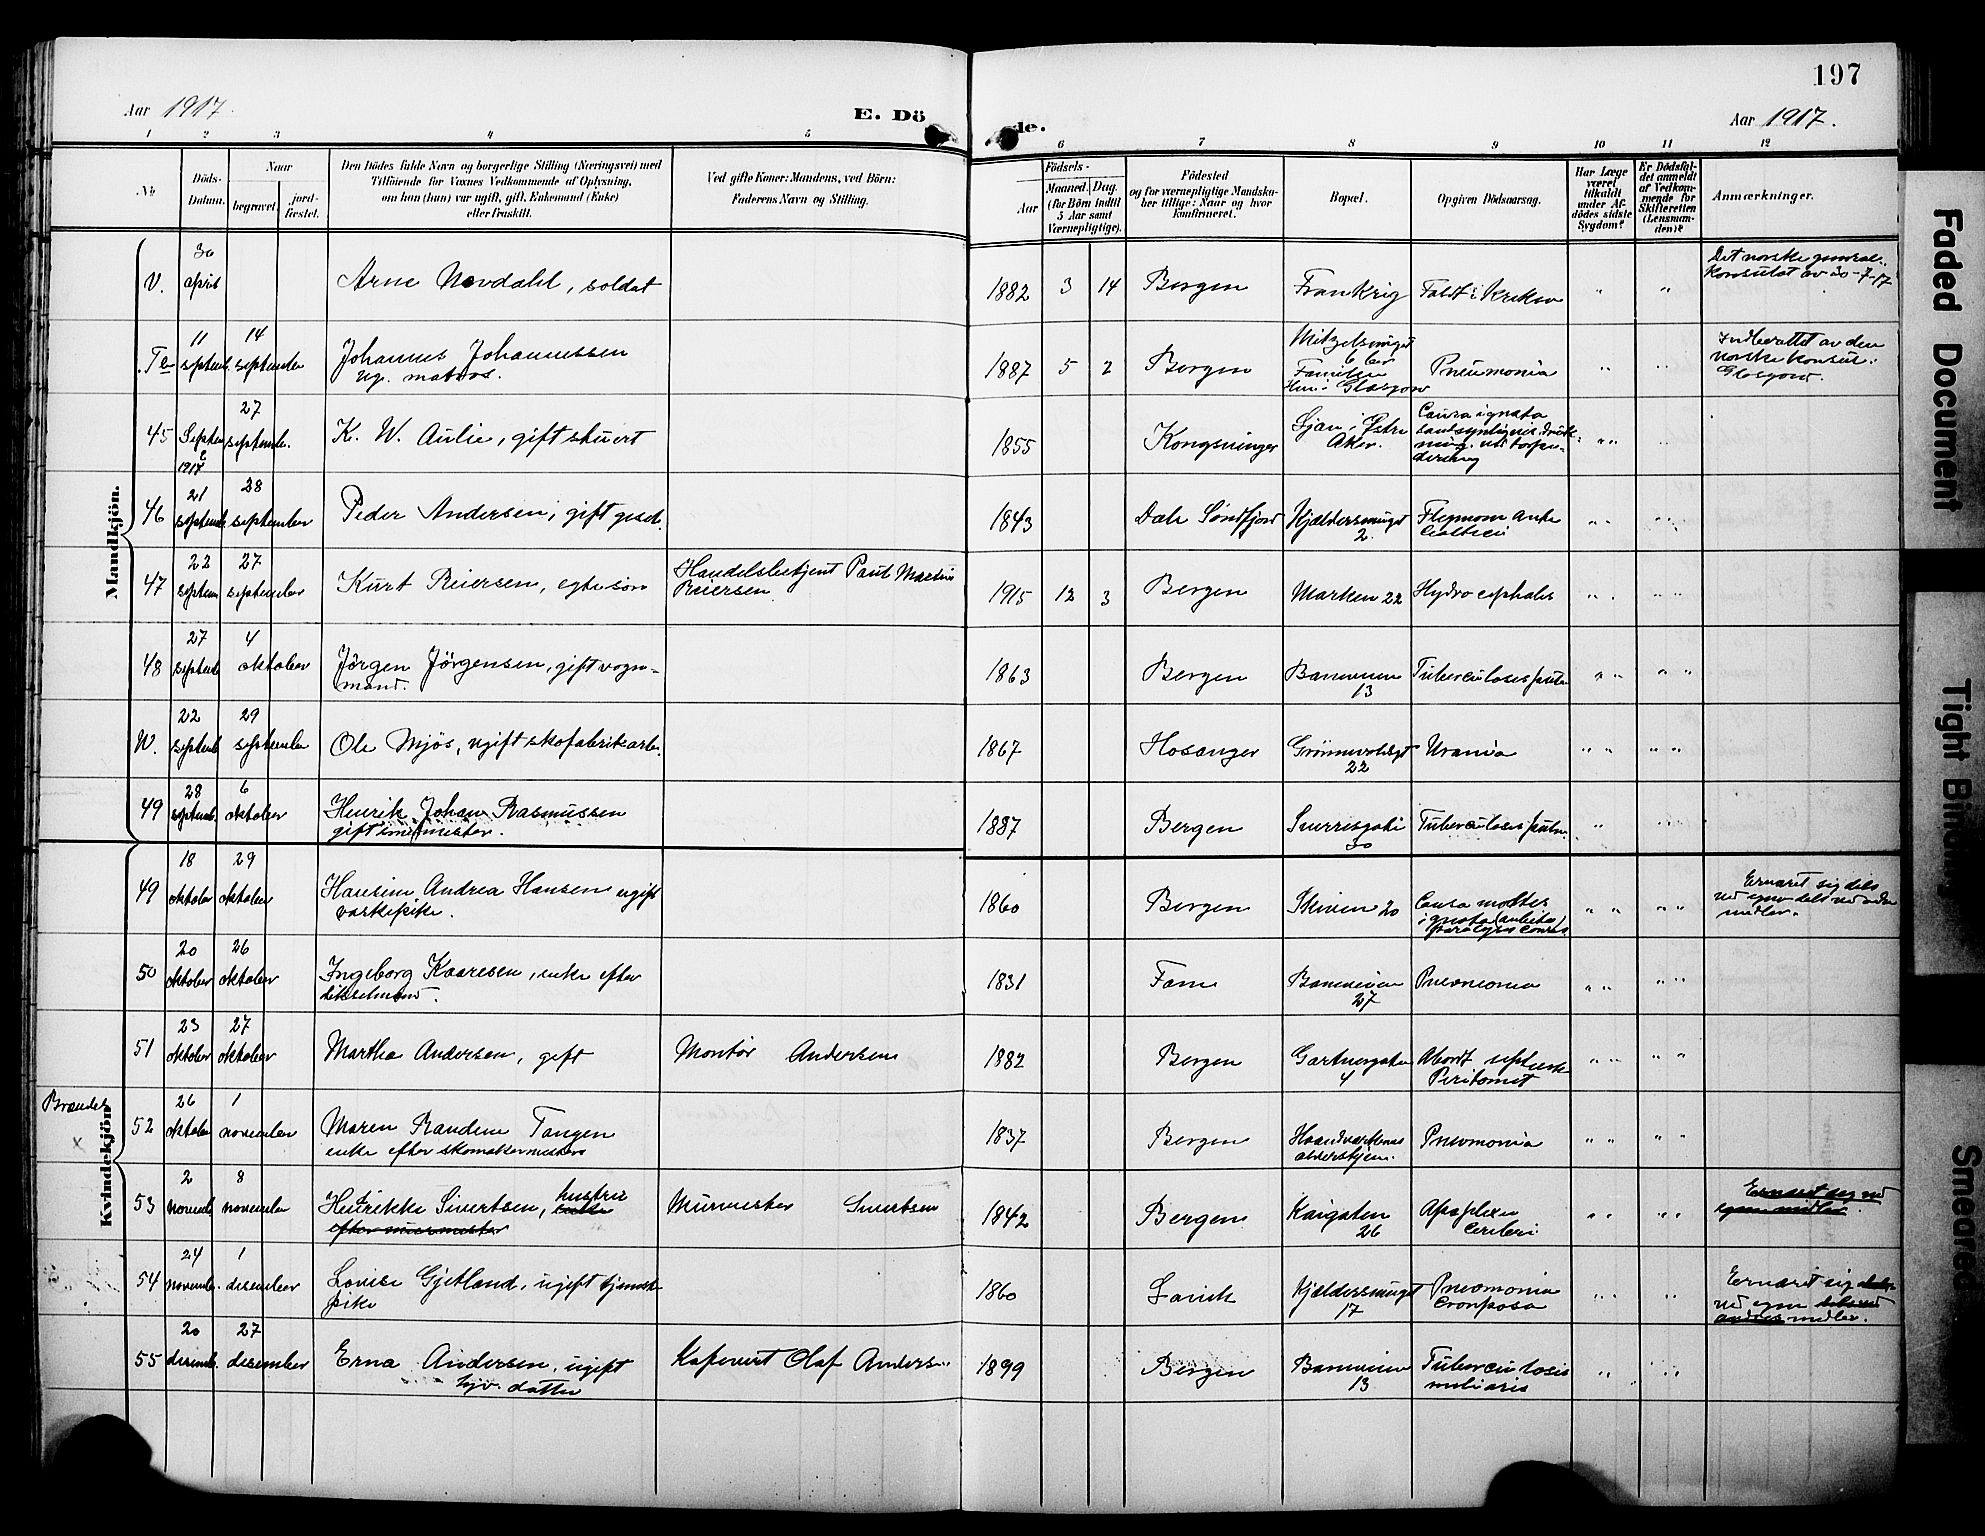 197
Aar 1917.
E. Döde.
Aar 1917.
1 2 3 4 5 6 7 8 9 10 11 12
No
Döds-Datum.
Naar
begravet.
jord-fæstet.
Den Dödes fulde Navn og borgerlige Stilling (Næringsvei) med
Tilföiende for Voxnes Vedkommende af Oplysning,
om han (hun) var ugift, gift, Enkemand (Enke)
eller fraskilt.
Ved gifte Koner: Mandens, ved Börn:
Faderens Navn og Stilling.
Födsels-
Aar
Maaned. Dag.
(for Börn indtil
5 Aar samt
Værnepligtige).
Födested
og for værnepligtige Mandska-
ber tillige: Naar og hvor
konfirmeret.
Bopæl.
Opgiven Dödsaarsag.
Har Læge
været
tilkaldt
under Af-
dödes sidste
Sygdom?
Er Dödsfal-
det anmeldt
af Vedkom-
mende for
Skifteretten
(Lensman-
den)?
Anmærkninger.
Mandkjön.
V. 30 april Arne Nordahl, soldat 1882 3 14 Bergen Frankrig Faldt i Krigen " " Det norske general-
konsulat av 30-7-17
11 septemb. 14 september Johannes Johannessen
ug. matros. 1887 5 2 Bergen
Familien
Glasgow Pneumonia " " Indberettet av den
norske konsul i
Glasgow.
45 Septem 1917 27 septembe. K. W. Aulie, gift stuert 1855 Kongsvinger Sjøen i Østre
Aker. Causa ignota
" " "
46 21 septemb. 28 september Peder Andersen, gift 1843 Dale Søndfjord Kjeldersmuget
2. " " " "
47 22 septem 27 september Kurt Reiersen, egte søn Handelsbetjent Paul Martin
Reiersen 1915 12 3 Bergen Marken 22 Hydrocephales " " " "
48 27 septemb 4 oktober Jörgen Jörgensen, gift vogn-
mand. 1863 Bergen 13 Tuberculosis pulm " " " "
W. 22 septemb 29 september Ole Mjös, ugift skofabrikarb. 1867 Hosanger 22 Uræmia " " " "
49 28 septemb. 6 oktober Henrik Johan Rasmussen
1887 Bergen Sverresgate
30 Tuberculosis pulm. " " "
Kvindekjön
49 18 oktober 29 oktober Hansine Andrea Hansen ugift
vaskepike. 1860 Bergen Skiven 20 Causa mortis
ignota
" " " " Ernæret sig dels
ved egne dels ved andres
midler.
50 20 oktober 26 oktober Ingeborg Kaaresen, enke efter
1831 Fane 27 Pneumonia " " " "
51 23 oktober 27 oktober Martha Andersen, gift Montør Andersen 1882 Bergen Gartnergaten
4 Abort
Peritonit " " " "
Brændet
x
52 26 oktober 1 november Maren Randine Tangen
enke efter skomakermester 1837 Bergen Haandværkernes
aldershjem. Pneumonia " " " "
53 2 novemb 8 november Henrikke Sivertsen, hustru
enke
efter murmester Murmester Sivertsen 1842 Bergen Kaigaten
26 Apoplexia
cerebri " " " " Ernæret sig ved
egne midler.
54 24 novembe. 1 desember Lovise Gjetland, ugift tjeneste-
pike 1860 Lavik Kjeldersmuget
17 Pneumonia
Crouposa " " " Ernæret sig dels
ved egne dels ved
andres midler.
55 20 desemb. 27 desember Erna Andersen, ugift
hjv. datter Olaf Anders 1899 Bergen 13 Tuberculosis
miliaris " " "
Faded Document
Tight Binding
Smeared